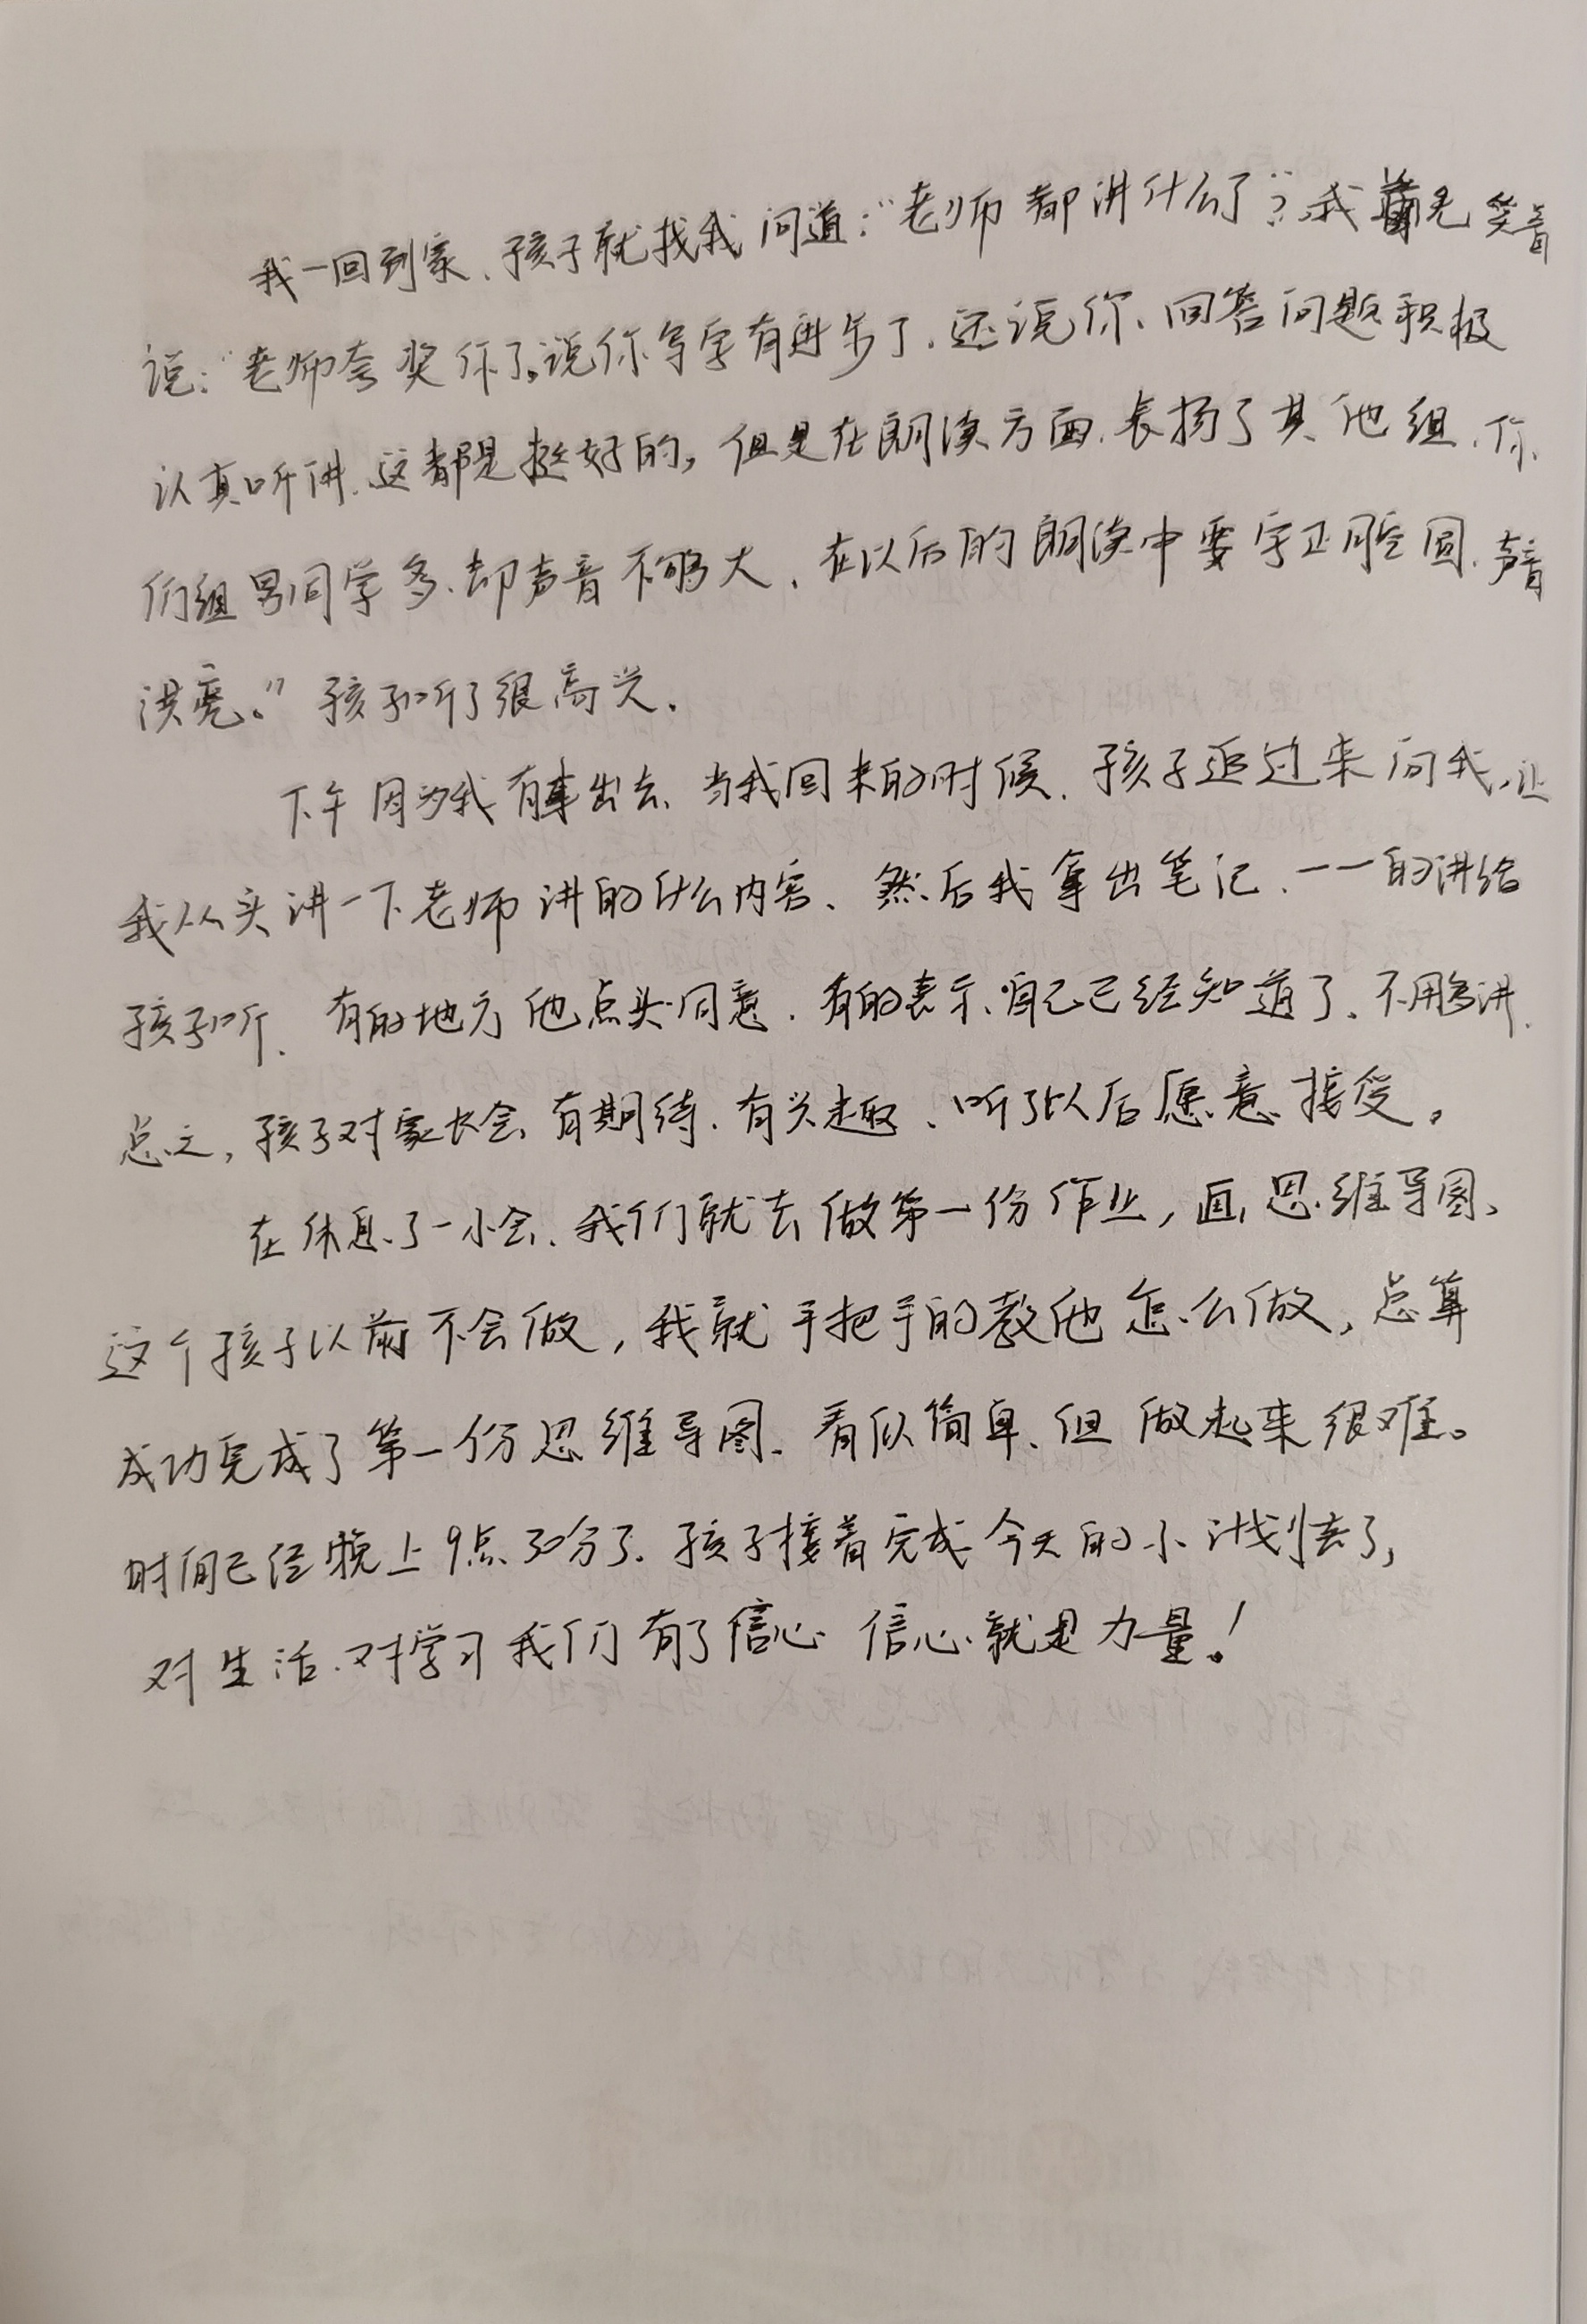 我一回到家、孩子就找我问道：“老师都讲什么了？”我首先笑着
说：“老师夸奖你了。说你写字有进步了．还说你、回答问题积极
认真听讲．这都是挺好的，但是在朗读方面．表扬了其他组．你
们组男同学多．却声音不够大．在以后的朗读中要字正腔圆．声音
洪亮。”孩子听了很高兴．
下午因为我有事出去、当我回来的时候．孩子追过来问我，让
我从头讲一下老师讲的什么内容、然后我拿出笔记．一一的讲给
孩子听．有的地方他点头同意．有的表示、自己已经知道了、不用多讲．
总之，孩子对家长会有期待．有兴趣、听了以后愿意接受。
在休息了一小会、我们就去做第一份作业，画思维导图、
这个孩子以前不会做，我就手把手的教他怎么做，总算
成功完成了第一份思维导图、看似简单、但做起来很难。
时间已经晚上9点30分了．孩子接着完成今天的小计划去了，
对生活．对学习我们有了信心 信心就是力量！